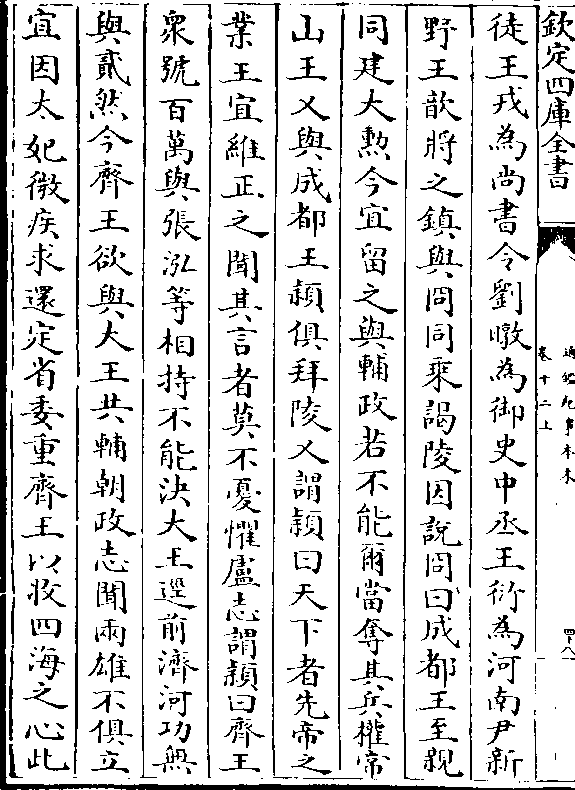 欽定四庫全書
通鑑紀事本末
卷十二上
四十八
徒王戎為尚書令劉暾為御史中丞王衍為河南尹新
野王歆將之鎮與冏同乘謁陵因說冏曰成都王至親
同建大勲今宜留之與輔政若不能爾當奪其兵權常
山王乂與成都王穎俱拜陵乂謂穎曰天下者先帝之
業王宜維正之聞其言者莫不憂懼盧志謂穎曰齊王
衆號百萬與張泓等相持不能決大王逕前濟河功無
與貳然今齊王欲與大王共輔朝政志聞兩雄不俱立
宜因太妃微疾求還定省委重齊王以收四海之心此